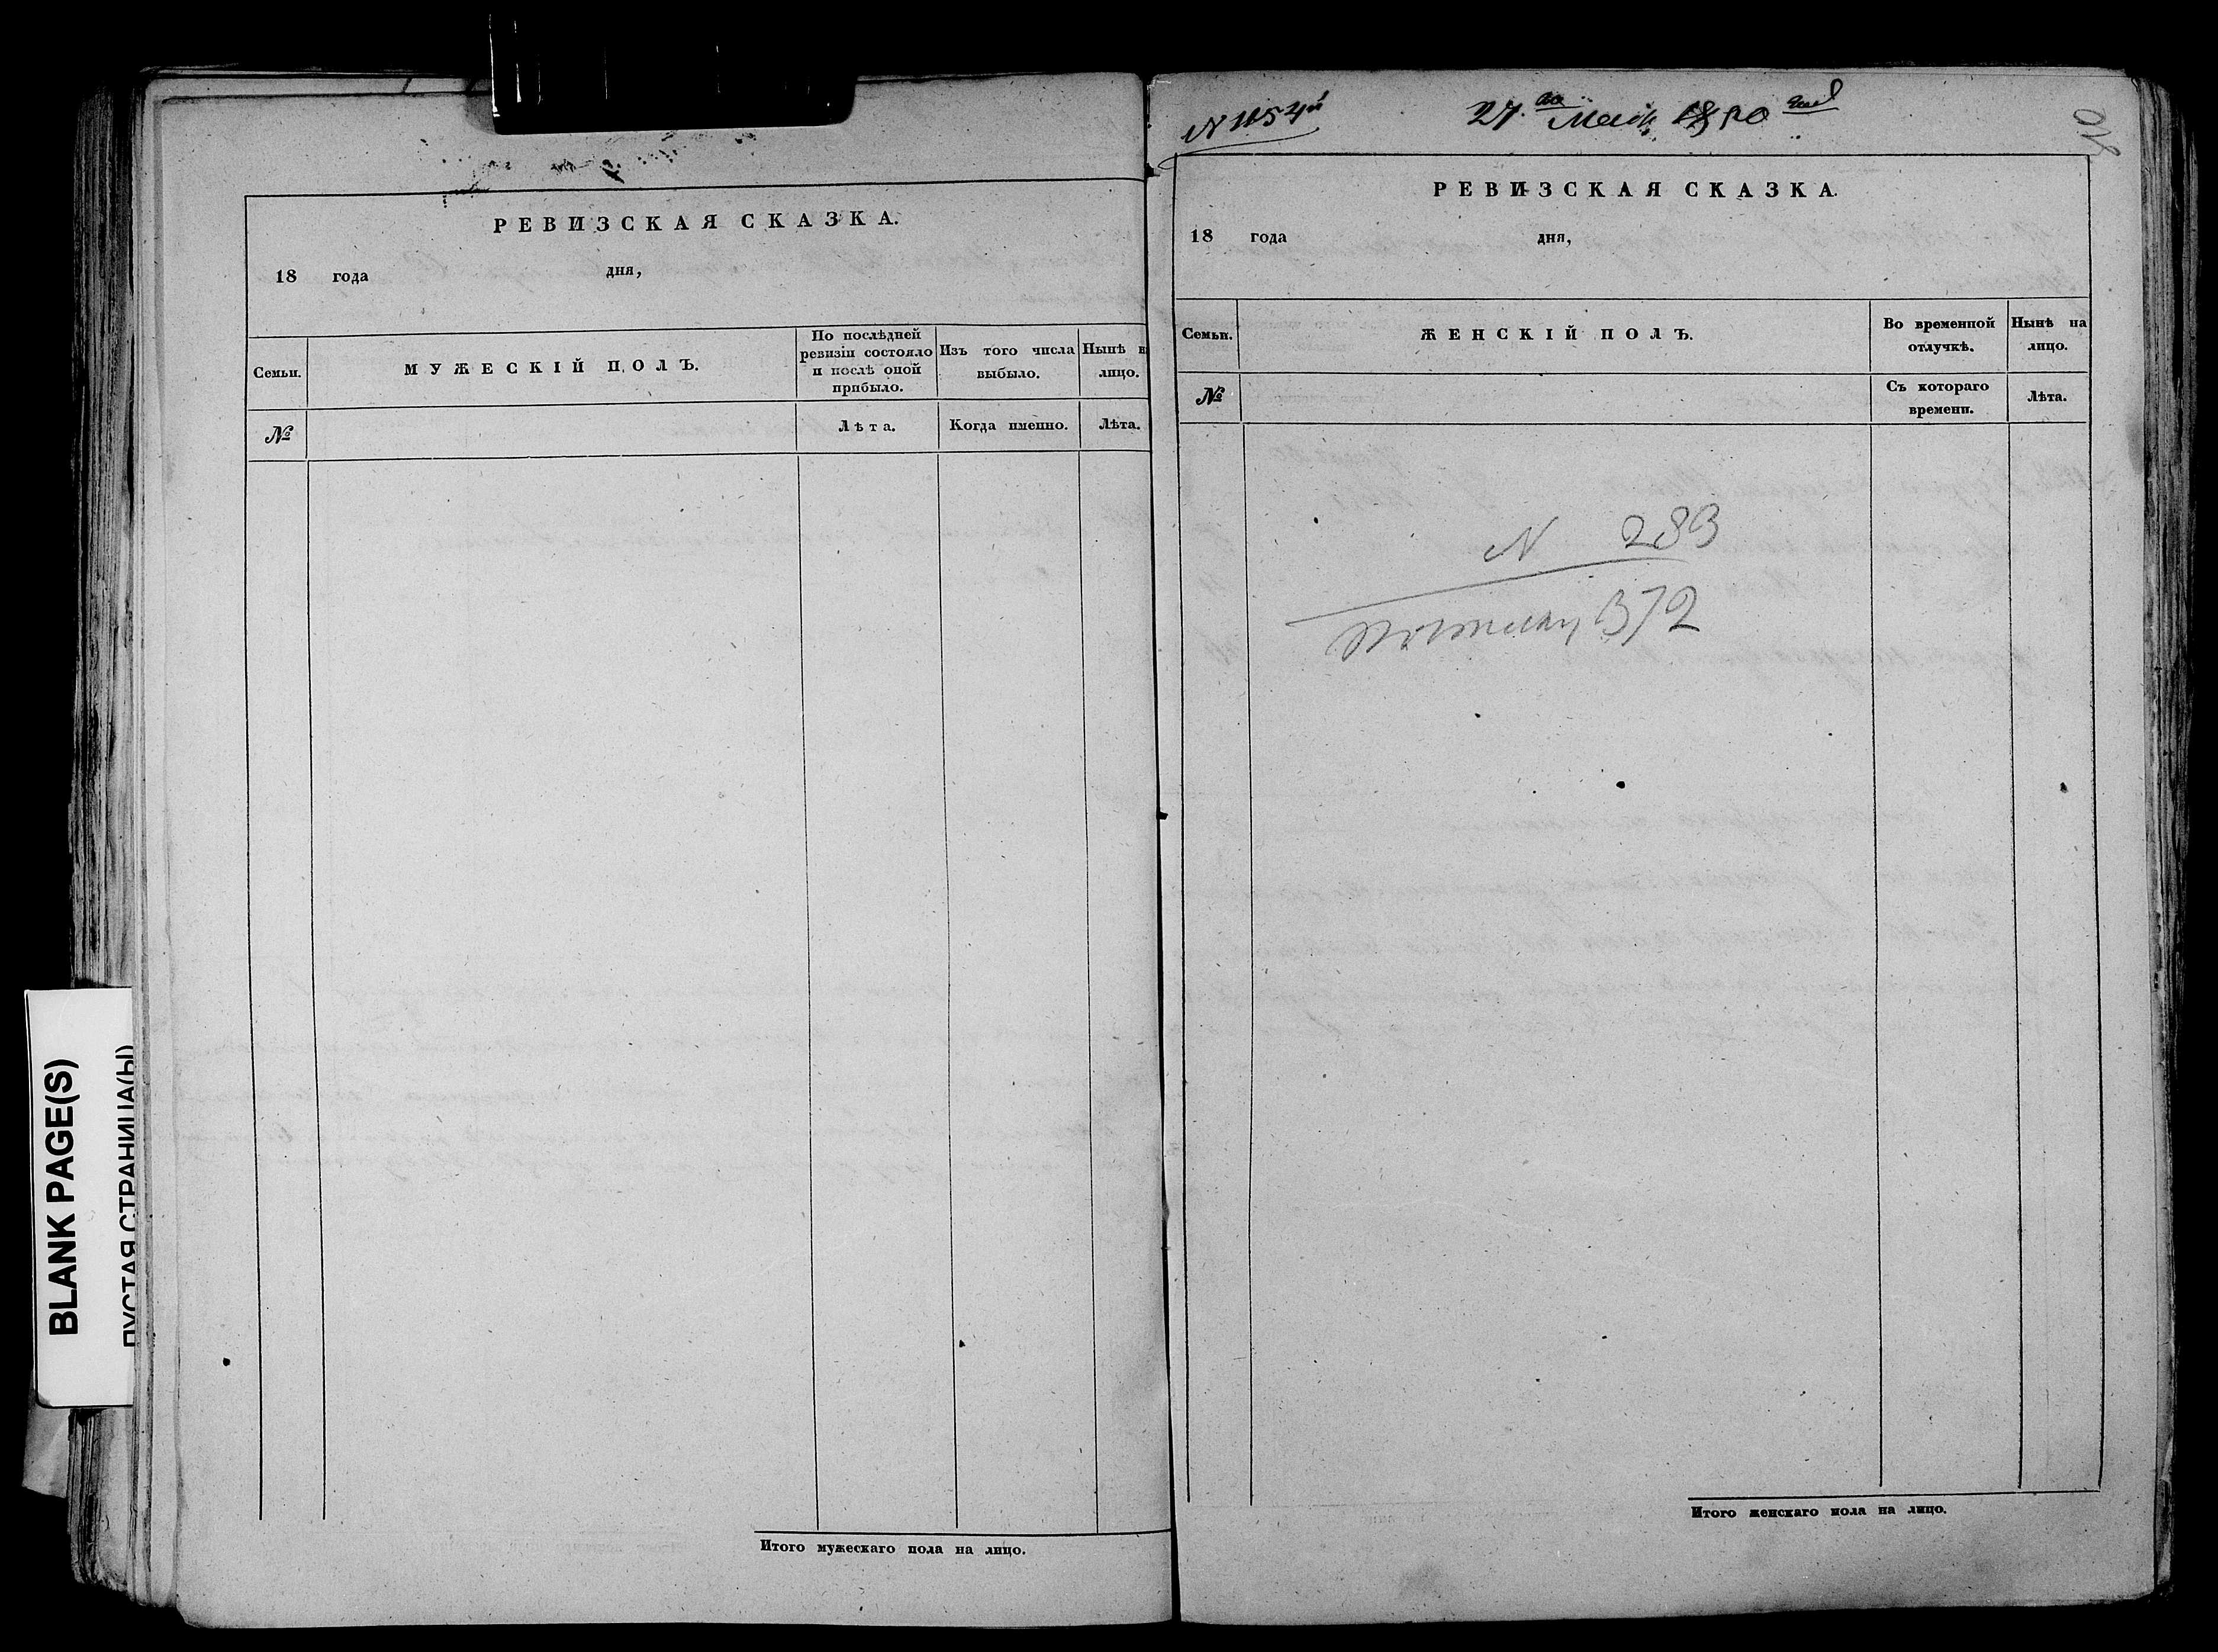 РЕВИЗСКАЯ СКАЗКА.
18 года дня,
Семьи.
МУЖЕСКІЙ ПОЛЪ.
По послѣдней
ревизіи состояло
и послѣ оной
прибыло.
Изъ того числа
выбыло.
Нынѣ н
лицо.
№
Лѣта.
Когда именно.
Лѣта.
Итого мужескаго пола на лицо.
27. 1850
РЕВИЗСКАЯ СКАЗКА.
18 года дня,
Семьи.
ЖЕНСКІЙ ПОЛЪ.
Во временной
отлучкѣ.
Нынѣ на
лицо.
№
Съ котораго
времени.
Лѣта.
N 283
372
Итого женскаго пола на лицо.
BLANK PAGE(S)
ПУСТАЯ СТРАНИЦА(Ы)